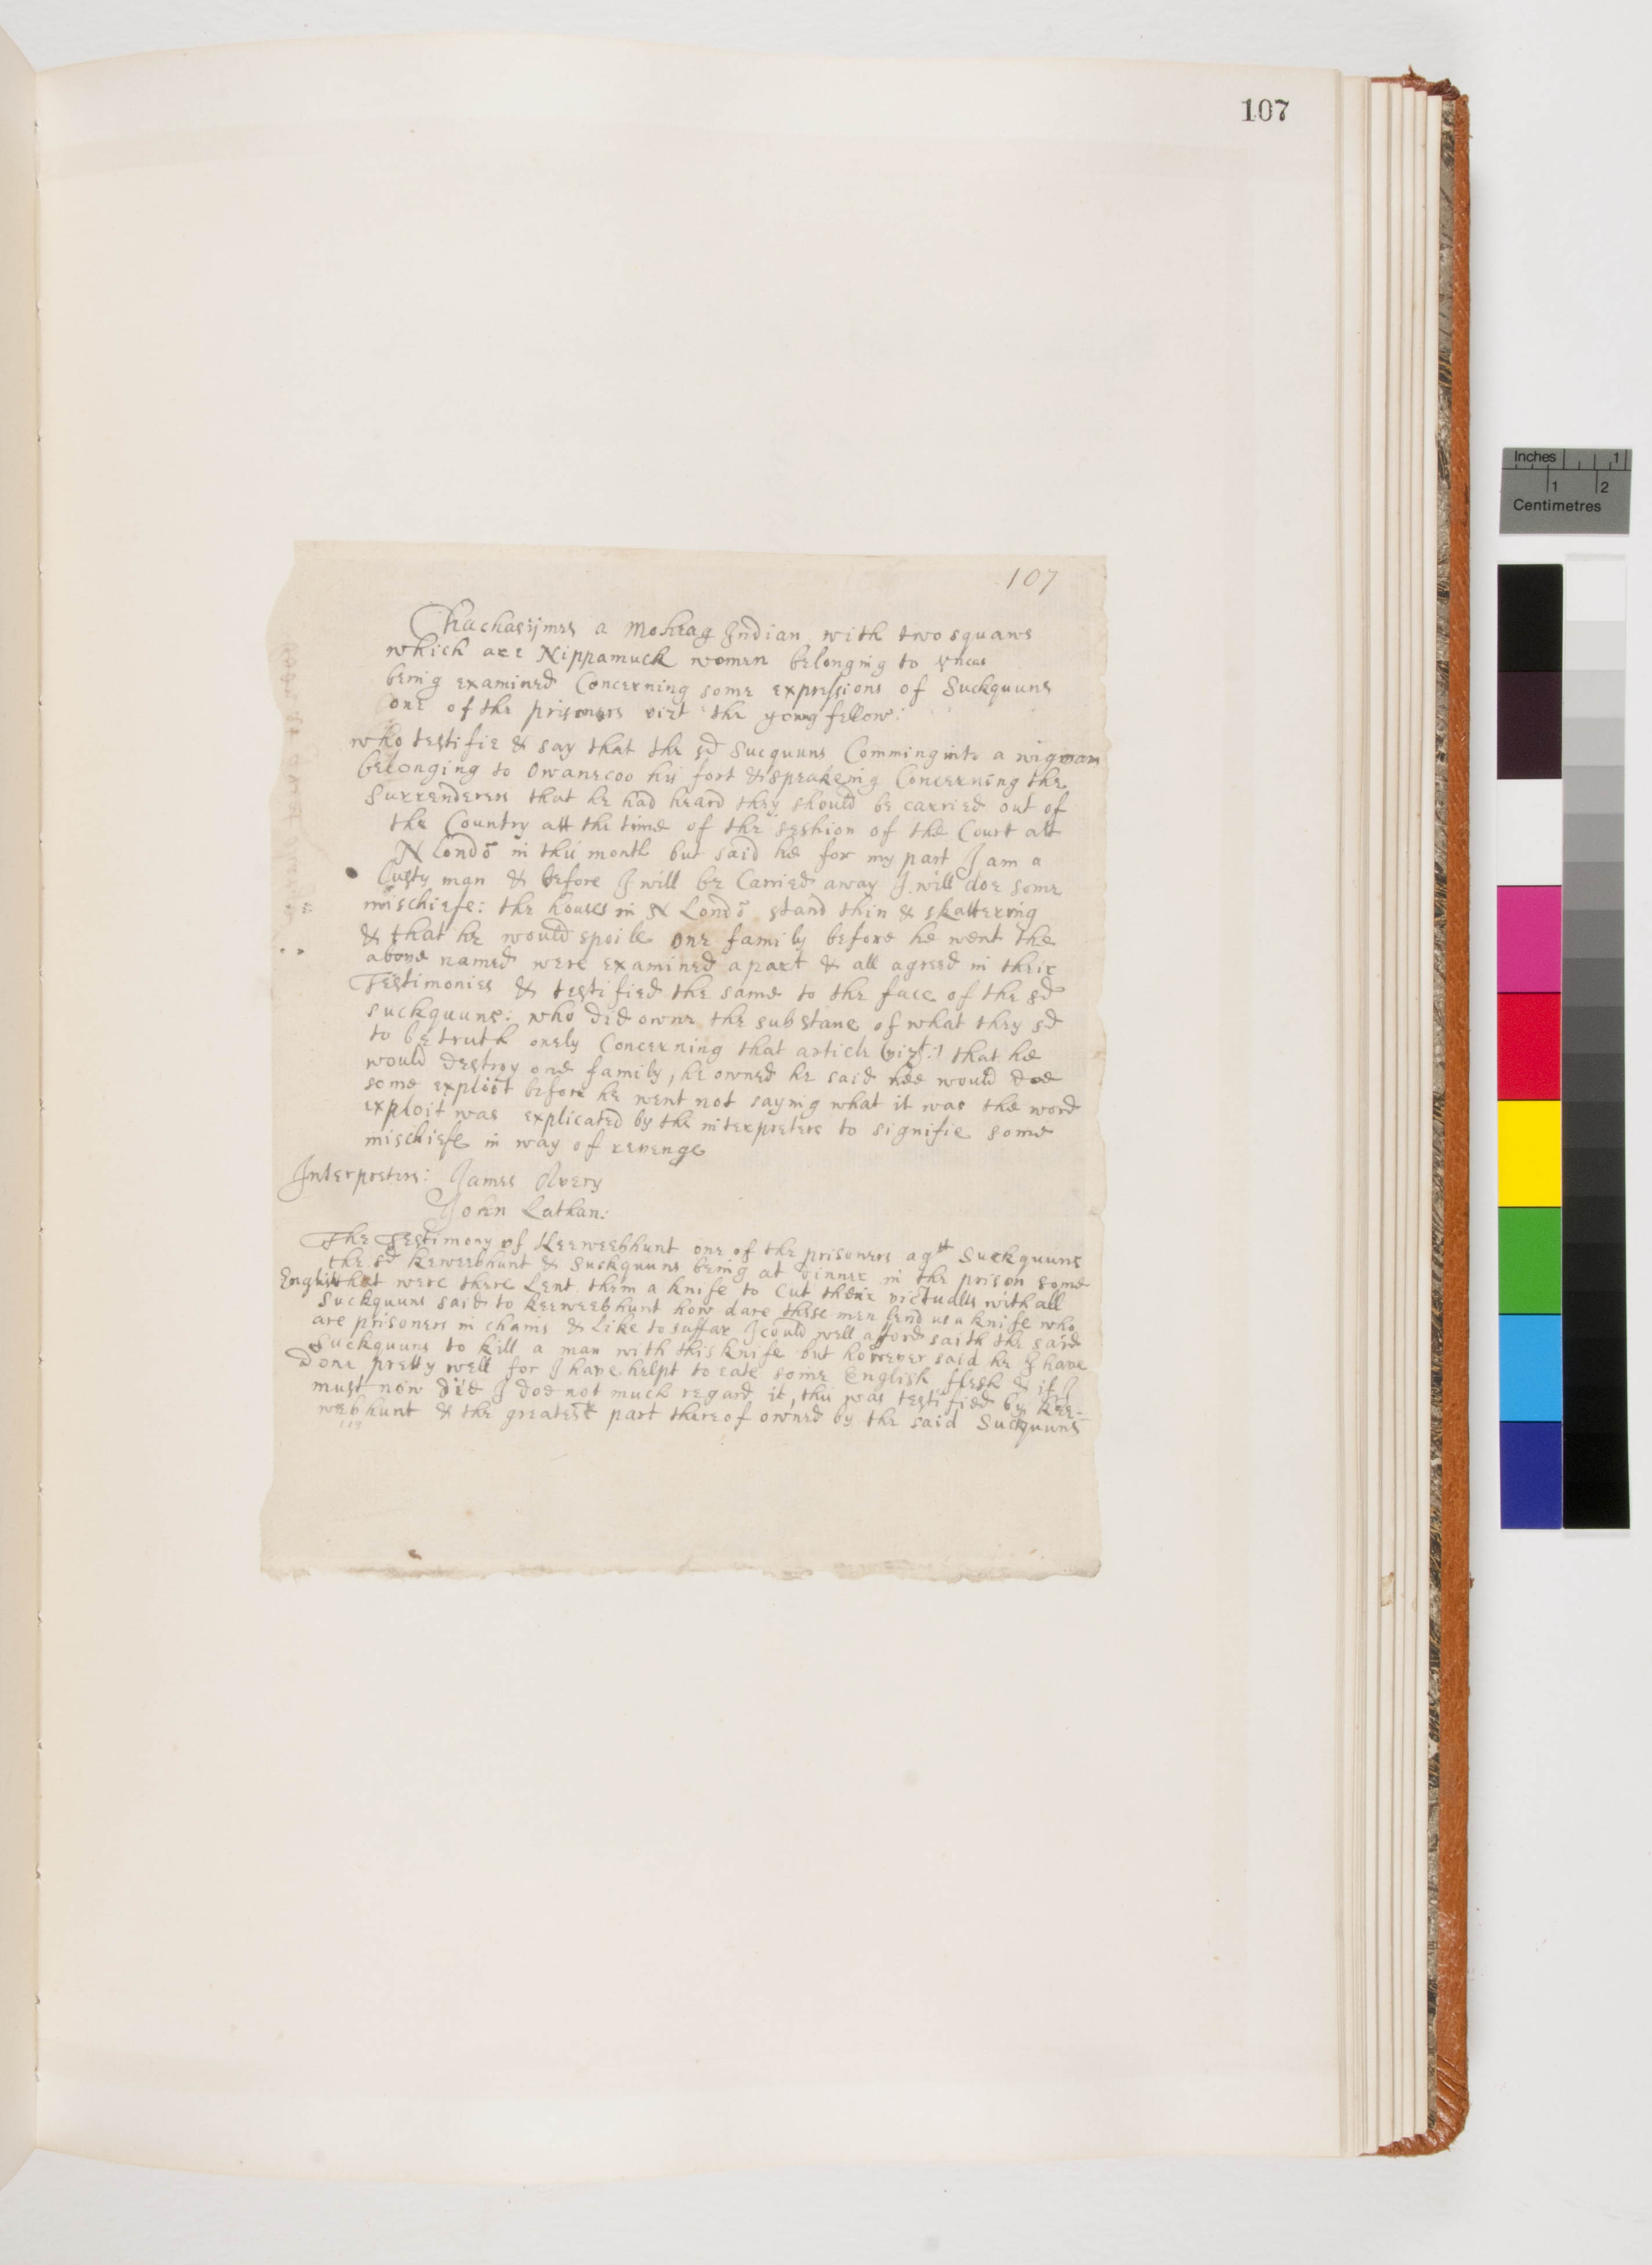 107
107
Chachasijmes a Moheag Indian with two squaws
which are Nippamuck women belonging to Vncas
being examined Concerning some expressions of Suckquuns
one of the prisoners vizt the young fellow:
who testifie & say that the sd Sucquuns Comming into a wigwam
belonging to Owanecoo his fort & speakeing Concerning the
Surrenderers that he had heard they should be carried out of
the Country att the time of the seshion of the Court att
N Londō in this month but said he for my part I am a
lusty man & before I will be Carried away I will doe some
mischiefe: the houses in N Londō stand thin & skattering
& that he would spoile one family before he went the
above named were examined apart & all agreed in their
Testimonies & testified the same to the face of the sd
Suckquuns: who did owne the substanc of what they sd
to be truth onely Concerning that article (vizt:) that he
would destroy one family, he owned he said hee would doe
some exploit before he went not saying what it was the word
exploit was explicated by the interpreters to signifie some
mischiefe in way of revenge
Interpreters: James Avery
John Lathan:
The Testimony of Keeweebhunt one of the prisoners agst Suckquuns
the sd Keweebhunt & Suckquuns being at dinner in the prison some
English that were there Lent them a knife to Cut their victualls withall
Suckquuns said to Keeweebhunt how dare these men lend us a knife who
are prisoners in chains & Like to suffar I could well afford saith the said
Suckquuns to kill a man with this knife but however said he I have
done pretty well for I have helpt to eate some English flesh & if I
must now die I doe not much regard it, this was testified by Kee-
webhunt & the greatest part thereof owned by the said Suckquuns
Inches 1
1 2
Centimetres